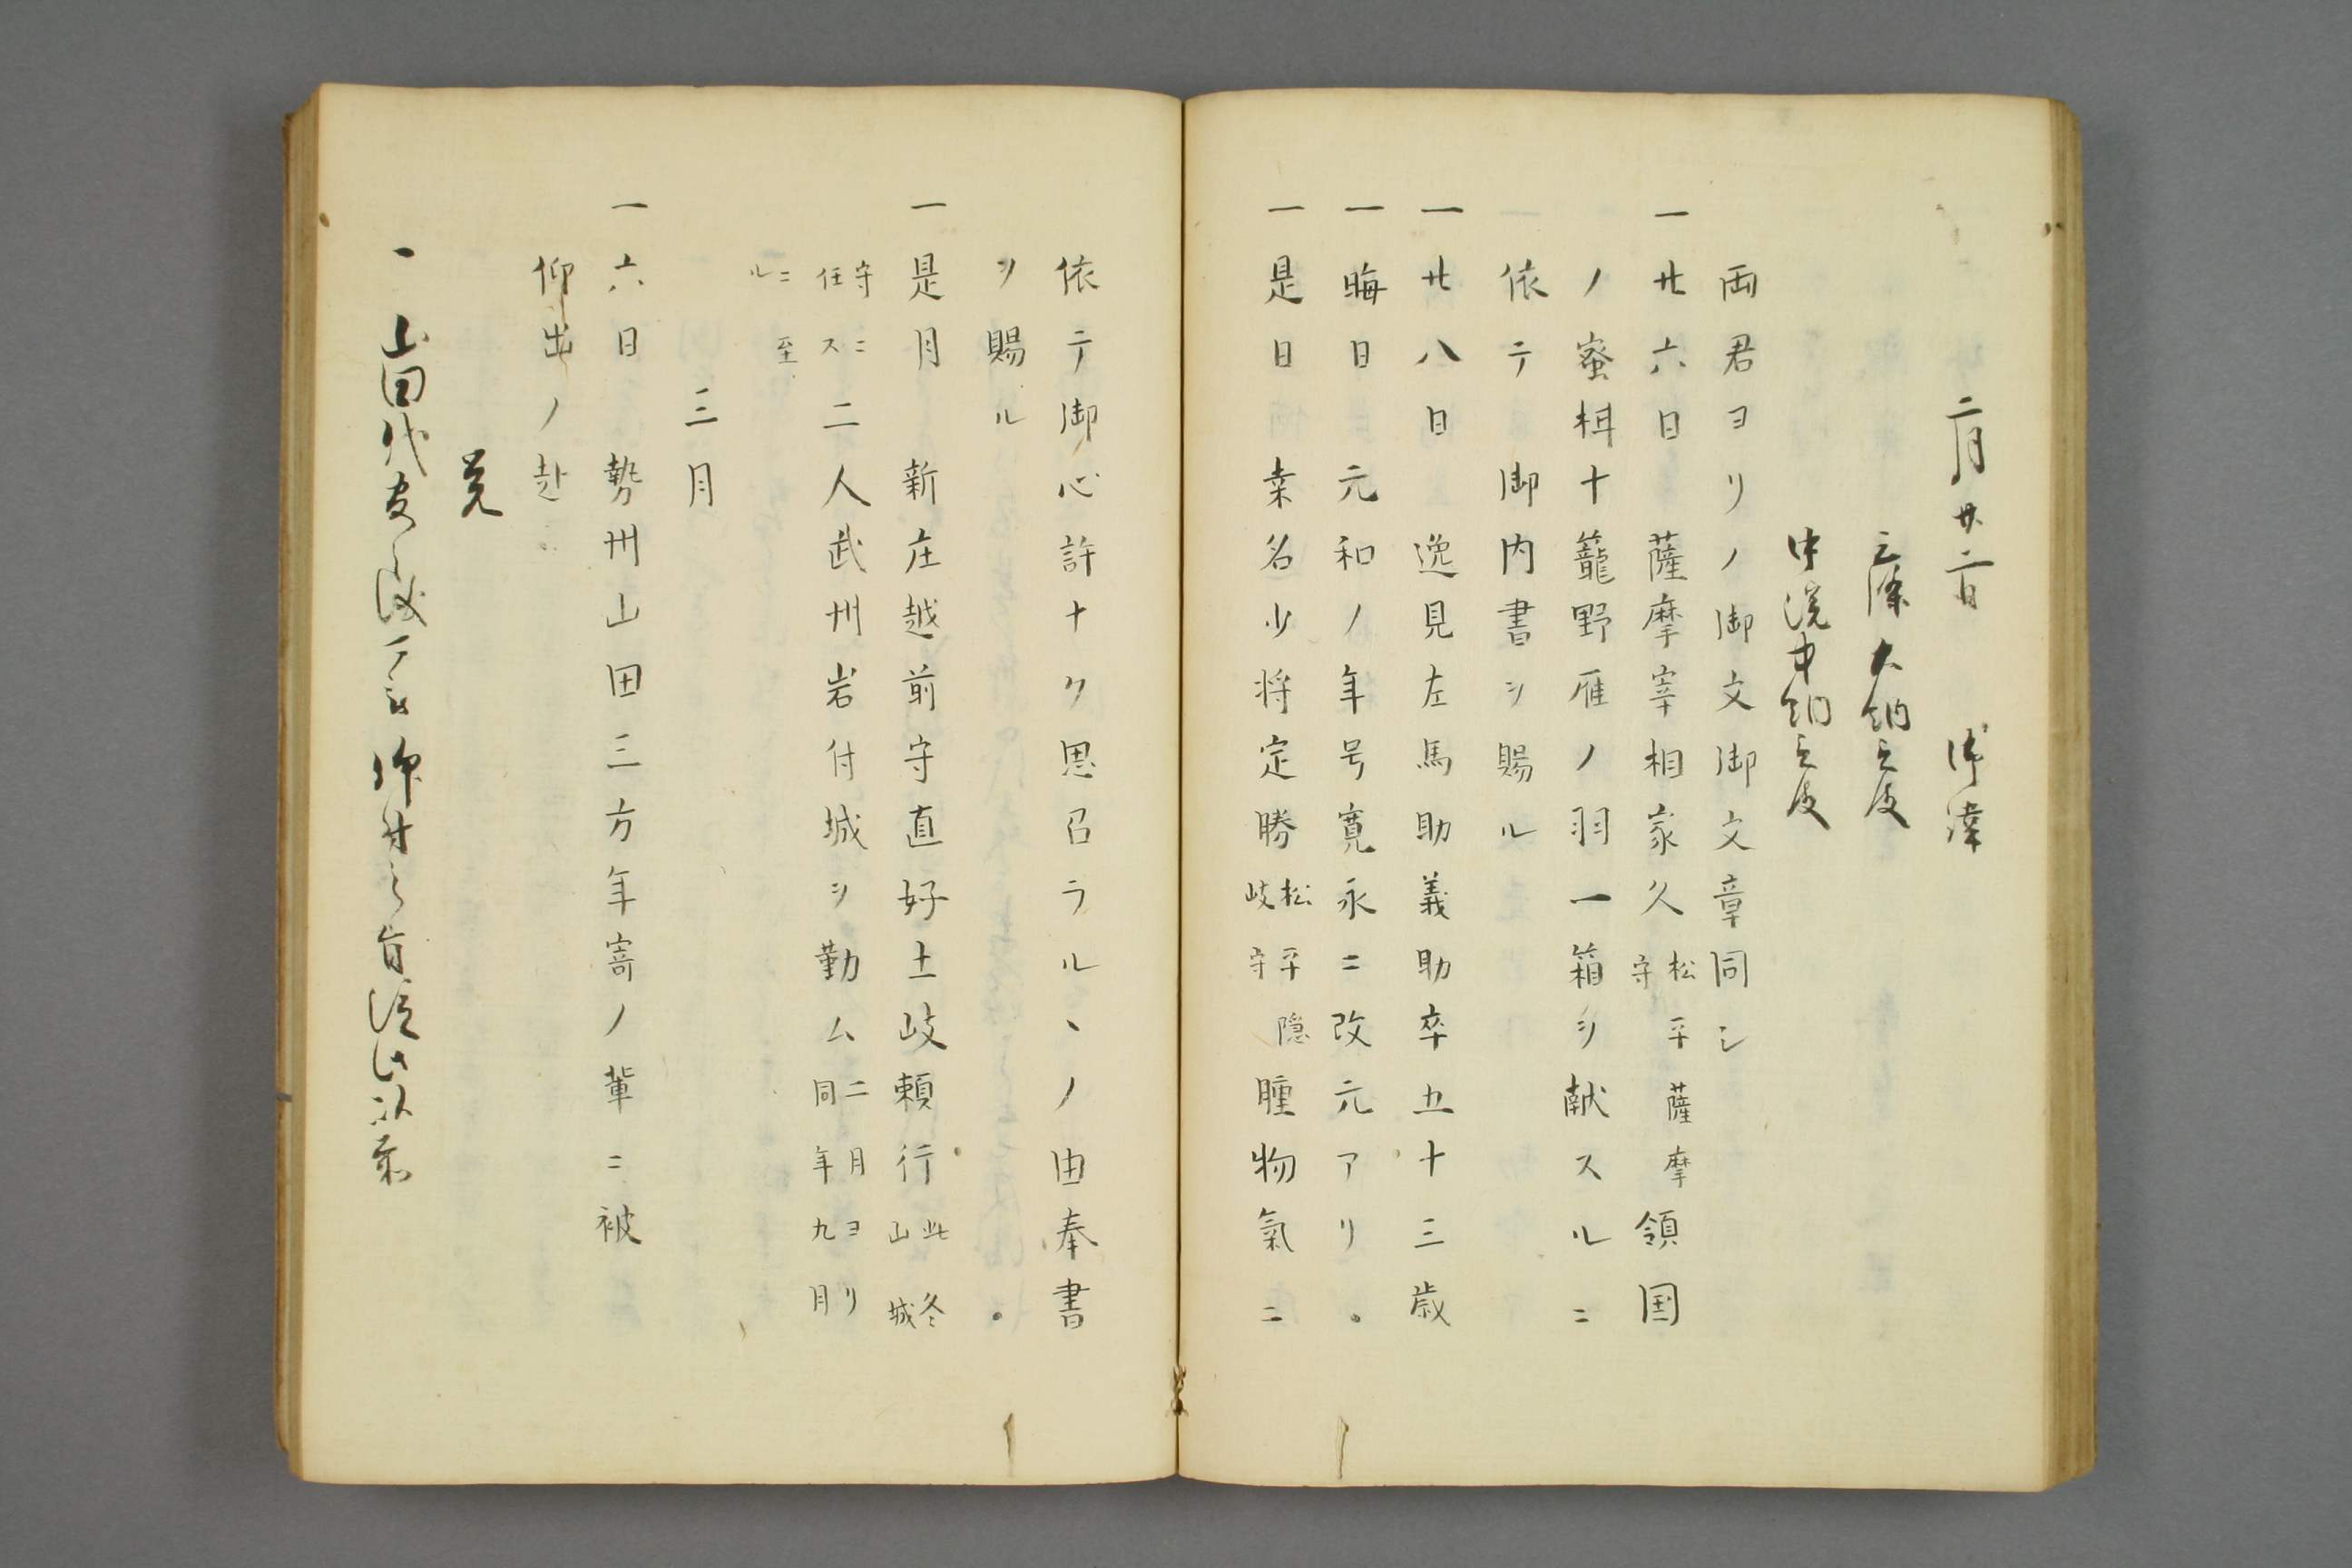 二月廿二日　御諱
三條大納言殿
中院中納言殿
両君ヨリノ御文御文章同シ
一廿六日　薩摩宰相家久松平薩摩守領国
ノ蜜柑十籠野雁ノ羽一箱ヲ献スルニ
依テ御内書ヲ賜ル
一廿八日　逸見左馬助義助卒五十三歳
一晦日元和ノ年号寛永ニ改元アリ。
一是日　桒名少将定勝松平隠岐守腫物氣ニ
依テ御心許ナク思召ラルヽノ由奉書
ヲ賜ル。
一是月　新庄越前守直好土岐頼行此冬山城
守ニ任ス二人武州岩付城ヲ勤ム二月ヨリ同年九月
ニ至ル
三月
一六日　勢州山田三方年寄ノ輩ニ被
仰出ノ赴
覚
一山田